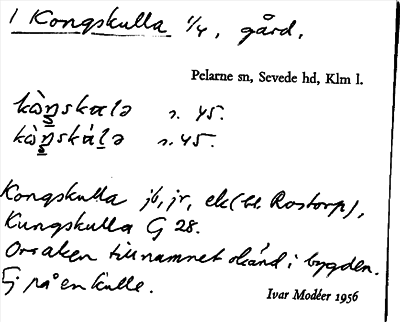 1 Kongskulla 1/4, gård,
Pelarne sn, Sevede hd, Klm l.
kòŋskulə s. 45.
kòŋskúlə s. 45.
Kongskulla jb, jr, ek (bl. Rostorp),
Kungskulla G 28.
Orsaken till namnet okänd i bygden.
Lj på en kulle.
Ivar Modéer 1956